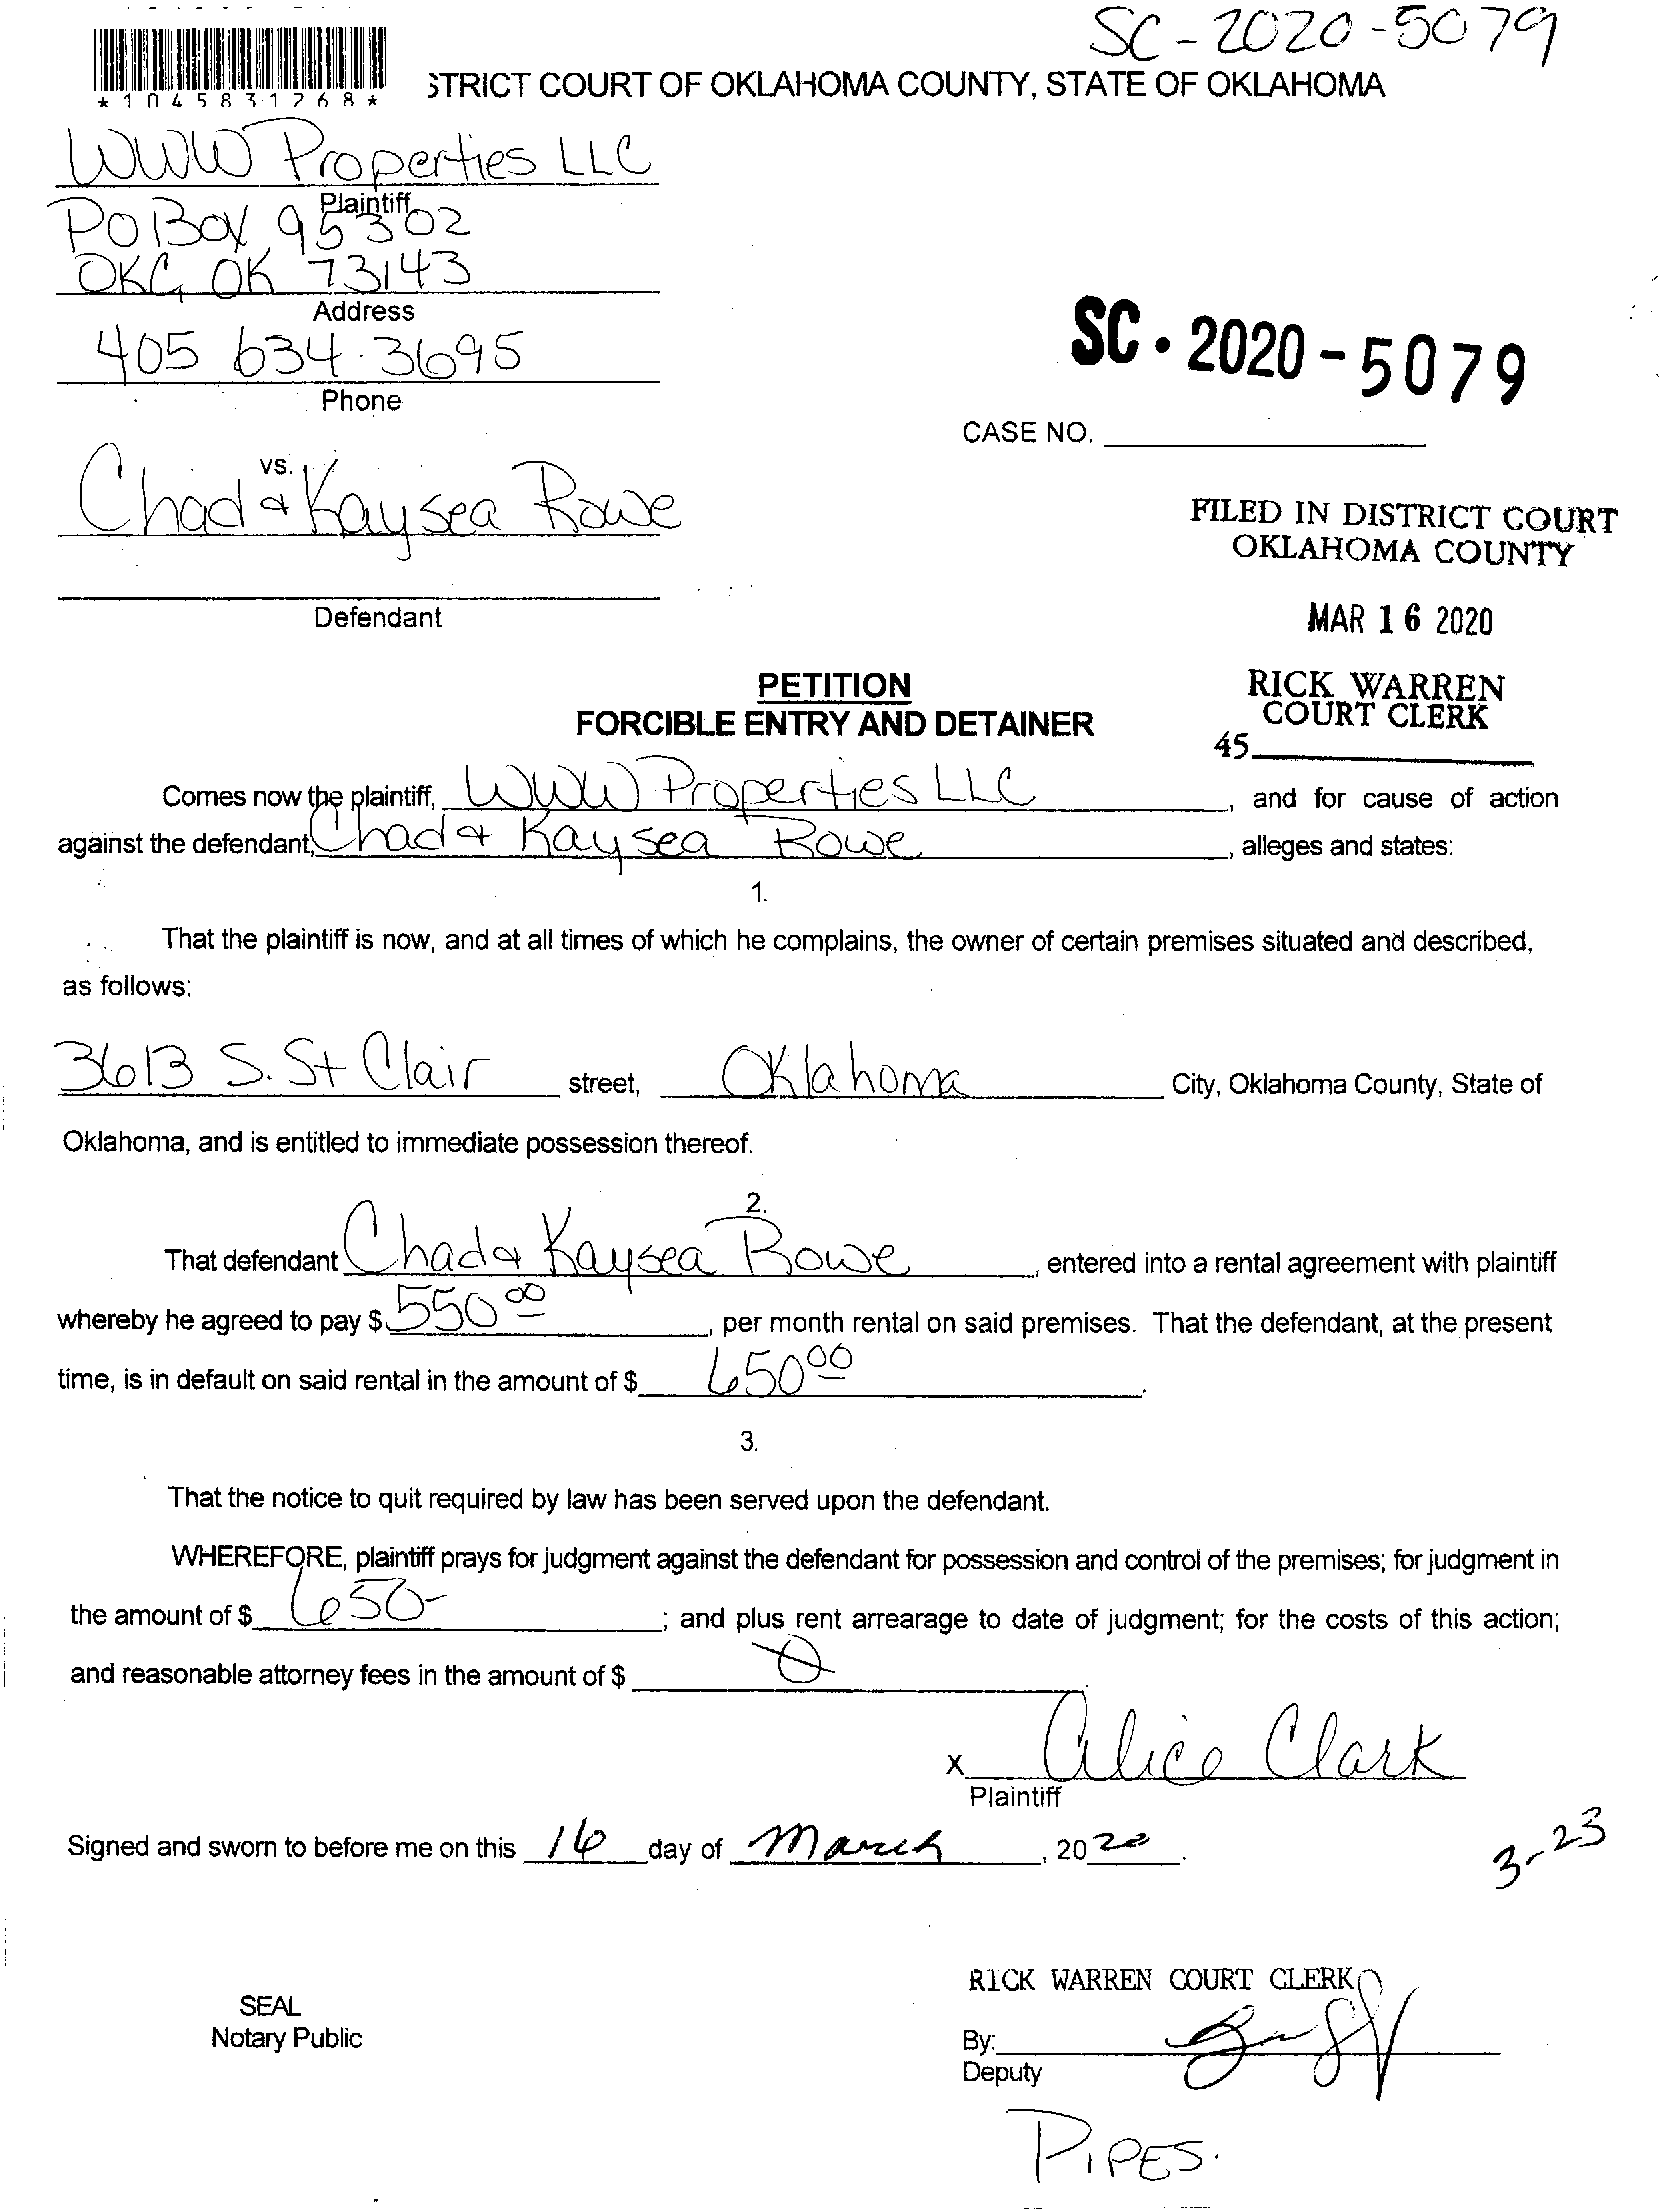 SC-2020-5079
*1045831268*
STRICT COURT OF OKLAHOMA COUNTY, STATE OF OKLAHOMA
WWW Properties LLC
Plaintiff
PO Box 95302
OKC, OK 73143
Address
405 634-3695
Phone
SC·2020-5079
CASE NO.
vs.
Chad & Kaysea Rowe
Defendant
FILED IN DISTRICT COURT
OKLAHOMA COUNTY
MAR 16 2020
RICK WARREN
COURT CLERK
45
PETITION
FORCIBLE ENTRY AND DETAINER
Comes now the plaintiff, WWW Properties LLC, and for cause of action
against the defendant, Chad & Kaysea Rowe, alleges and states:
1.
That the plaintiff is now, and at all times of which he complains, the owner of certain premises situated and described,
as follows:
3613 S. St Clair street, Oklahoma City, Oklahoma County, State of
Oklahoma, and is entitled to immediate possession thereof.
2.
That defendant Chad & Kaysea Rowe, entered into a rental agreement with plaintiff
whereby he agreed to pay $ 550.00, per month rental on said premises. That the defendant, at the present
time, is in default on said rental in the amount of $ 650.00.
3.
That the notice to quit required by law has been served upon the defendant.
WHEREFORE, plaintiff prays for judgment against the defendant for possession and control of the premises; for judgment in
the amount of $ 650-; and plus rent arrearage to date of judgment; for the costs of this action;
and reasonable attorney fees in the amount of $ 0
x Alice Clark
Plaintiff
Signed and sworn to before me on this 16 day of March, 2020.
3-23
RICK WARREN COURT CLERK
SEAL
Notary Public
By:
Deputy
PIPES.